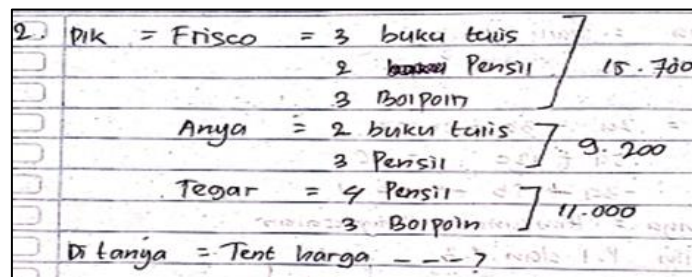 2. Dik = Frisco = 3 buku tulis
2 Pensil 15.700
3 Bolpoin
Anya = 2 buku tulis
3 Pensil 9.200
Tegar = 4 Pensil
3 Bolpoin 11.000
Ditanya = Tent harga --- ?